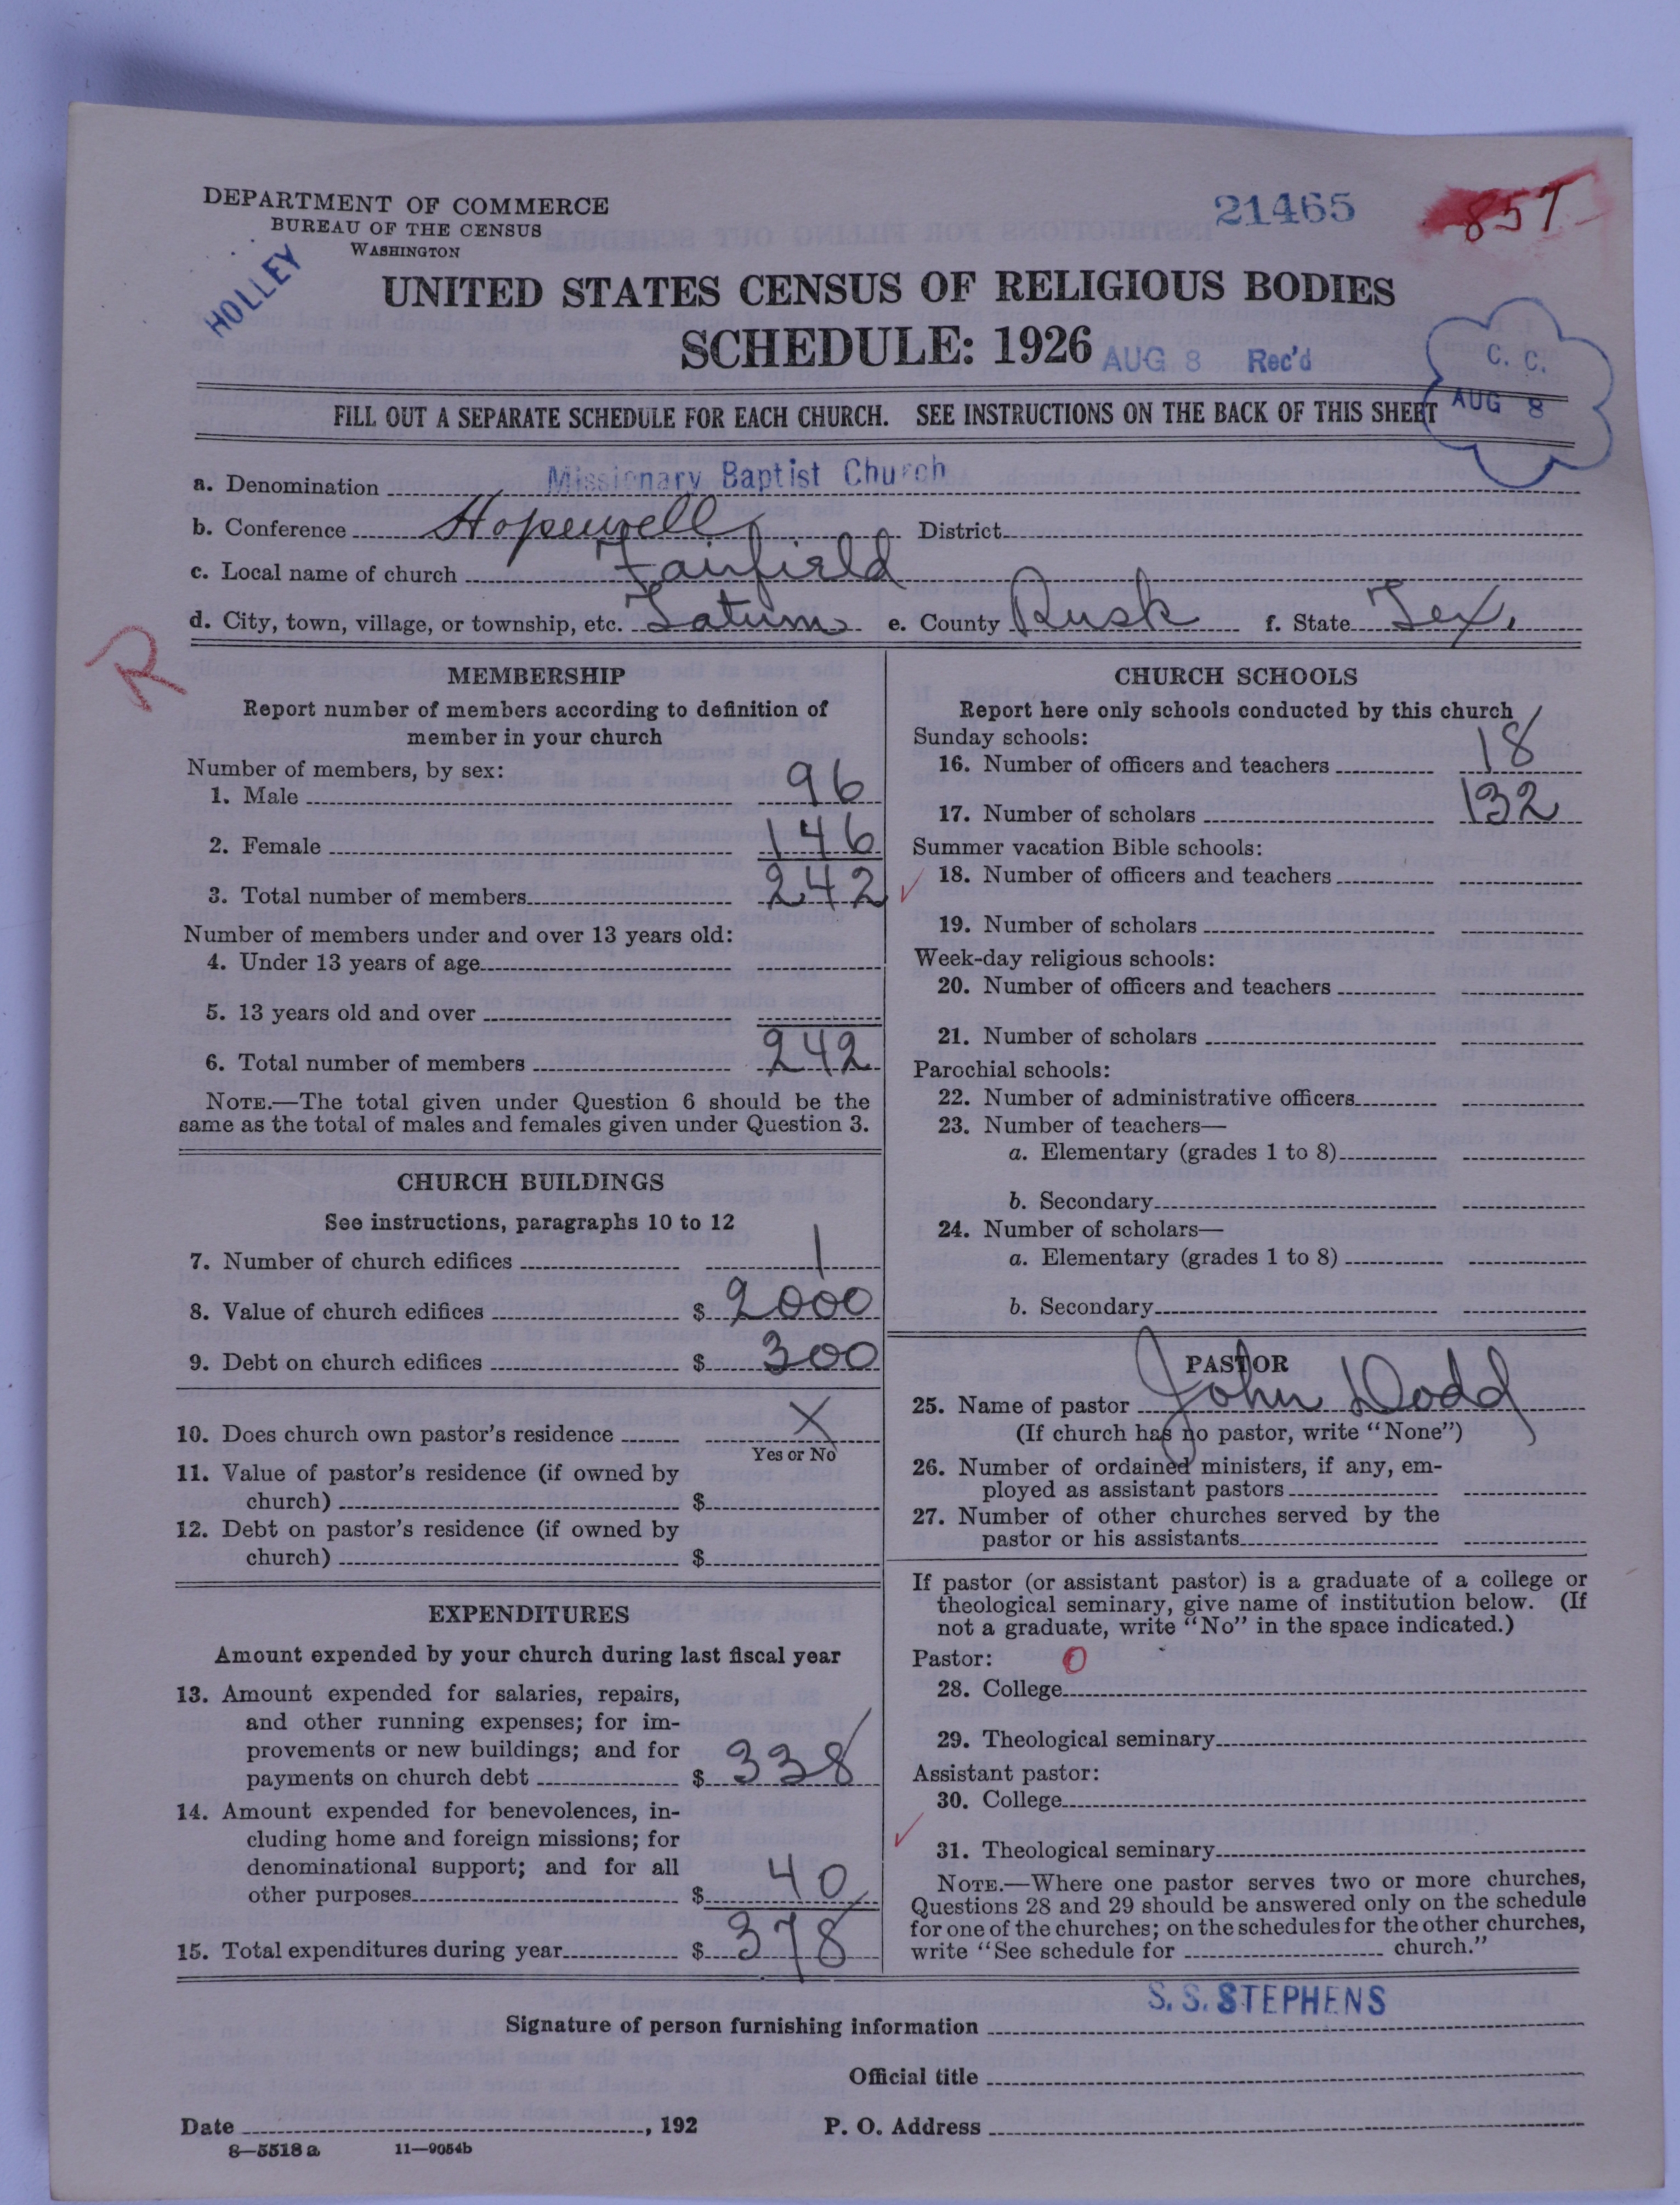 DEPARTMENT OF COMMERCE
BUREAU OF THE CENSUS
WASHINGTON
HOLLEY
21465
857
UNITED STATES CENSUS OF RELIGIOUS BODIES
SCHEDULE: 1926
AUG 8 Rec'd
C. C.
AUG 8
FILL OUT A SEPARATE SCHEDULE FOR EACH CHURCH. SEE INSTRUCTIONS ON THE BACK OF THIS SHEET
a. Denomination Missionary Baptist Church
b. Conference Hopewell District
c. Local name of church Fairfield
d. City, town, village, or township, etc. Tatum e. County Rusk f. State Tex.
R
MEMBERSHIP
Report number of members according to definition of
member in your church
Number of members, by sex:
1. Male 96
2. Female 146
3. Total number of members 242
Number of members under and over 13 years old:
4. Under 13 years of age
5. 13 years old and over
6. Total number of members 242
NOTE.—The total given under Question 6 should be the
same as the total of males and females given under Question 3.
CHURCH BUILDINGS
See instructions, paragraphs 10 to 12
7. Number of church edifices 1
8. Value of church edifices $ 2000
9. Debt on church edifices $ 300
10. Does church own pastor's residence X
Yes or No
11. Value of pastor's residence (if owned by
church) $
12. Debt on pastor's residence (if owned by
church) $
EXPENDITURES
Amount expended by your church during last fiscal year
13. Amount expended for salaries, repairs,
and other running expenses; for im-
provements or new buildings; and for
payments on church debt $ 338
14. Amount expended for benevolences, in-
cluding home and foreign missions; for
denominational support; and for all
other purposes $ 40
15. Total expenditures during year $ 378
CHURCH SCHOOLS
Report here only schools conducted by this church
Sunday schools:
16. Number of officers and teachers 18
17. Number of scholars 132
Summer vacation Bible schools:
18. Number of officers and teachers
19. Number of scholars
Week-day religious schools:
20. Number of officers and teachers
21. Number of scholars
Parochial schools:
22. Number of administrative officers
23. Number of teachers—
a. Elementary (grades 1 to 8)
b. Secondary
24. Number of scholars—
a. Elementary (grades 1 to 8)
b. Secondary
PASTOR
25. Name of pastor John Dodd
(If church has no pastor, write "None")
26. Number of ordained ministers, if any, em-
ployed as assistant pastors
27. Number of other churches served by the
pastor or his assistants
If pastor (or assistant pastor) is a graduate of a college or
theological seminary, give name of institution below. (If
not a graduate, write "No" in the space indicated.)
Pastor: 0
28. College
29. Theological seminary
Assistant pastor:
30. College
31. Theological seminary
NOTE.—Where one pastor serves two or more churches,
Questions 28 and 29 should be answered only on the schedule
for one of the churches; on the schedules for the other churches,
write "See schedule for church."
S. S. STEPHENS
Signature of person furnishing information
Official title
Date , 192 P. O. Address
8—5518 a 11—9054b